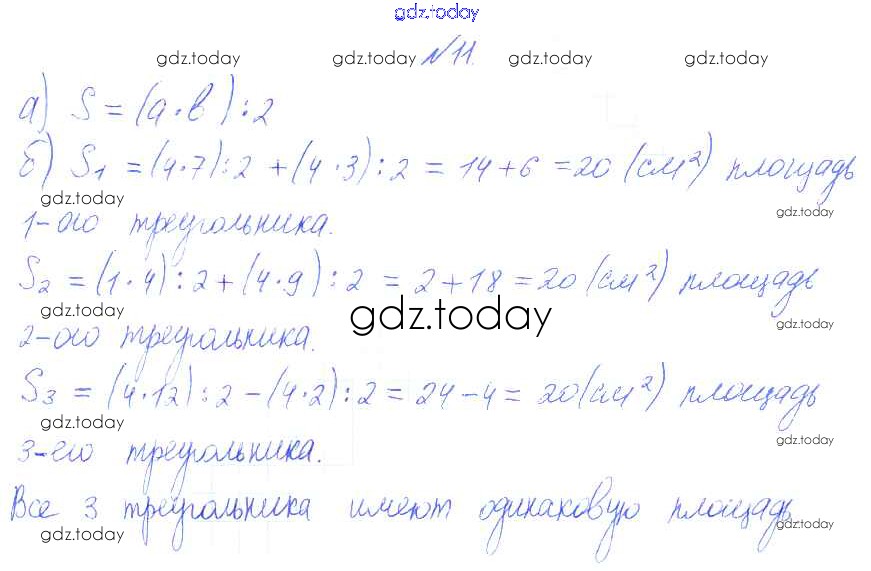 gdz.today
gdz.today gdz.today №11. gdz.today gdz.today
а) S = (a · b) : 2
б) S₁ = (4·7) : 2 + (4·3) : 2 = 14 + 6 = 20 (см²) площадь
gdz.today gdz.today
1-ого треугольника.
S₂ = (1·4) : 2 + (4·9) : 2 = 2 + 18 = 20 (см²) площадь
gdz.today gdz.today gdz.today
2-ого треугольника.
S₃ = (4·12) : 2 - (4·2) : 2 = 24 - 4 = 20 (см²) площадь
gdz.today gdz.today
3-его треугольника.
Все 3 треугольника имеют одинаковую площадь
gdz.today gdz.today